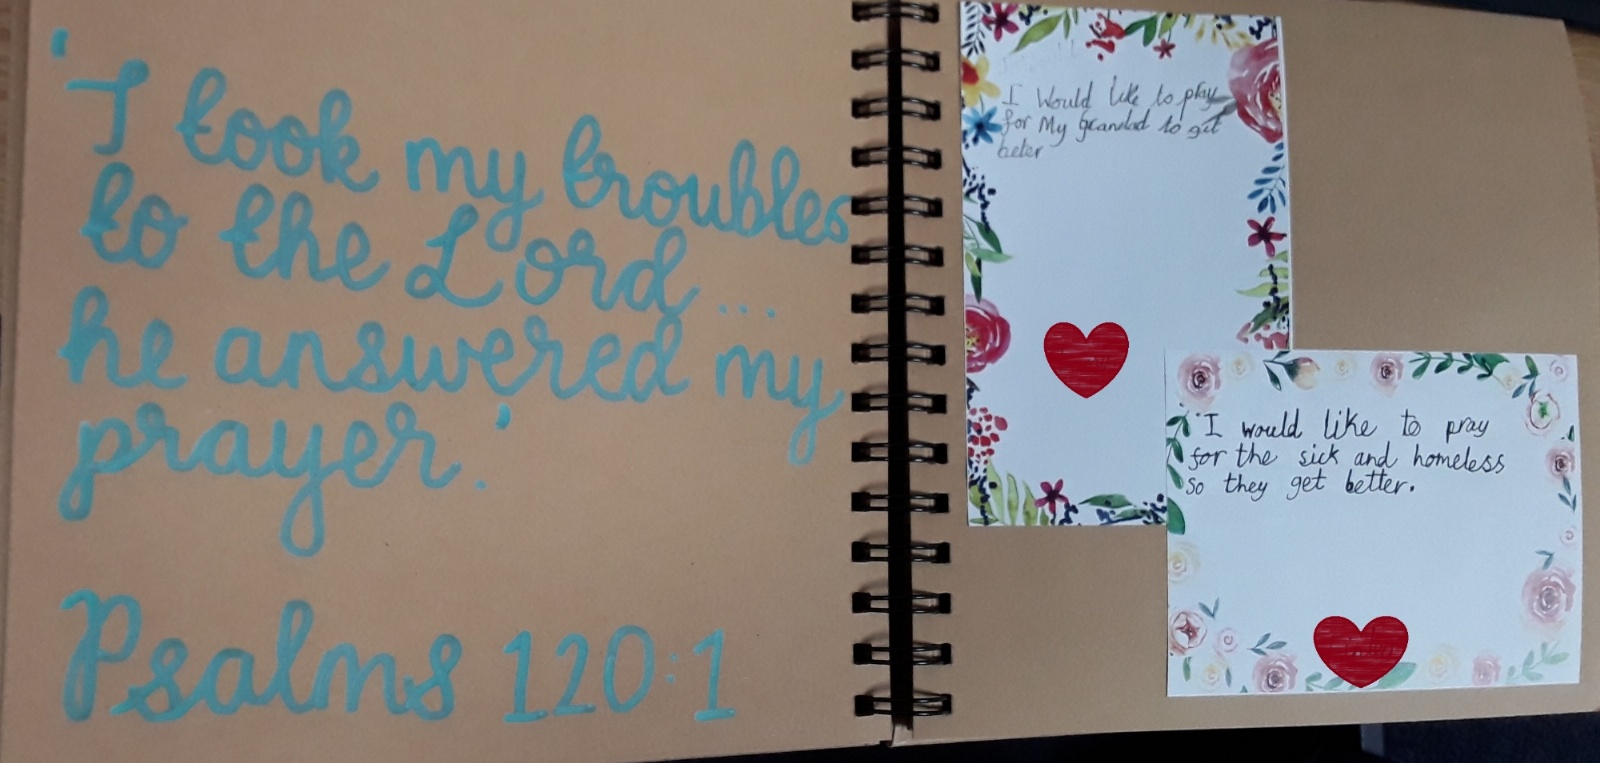 'I took my troubles
to the Lord...
he answered my
prayer.'
Psalms 120:1
I Would like to play
for My grandad to get
beter
I would like to pray
for the sick and homeless
so they get better.